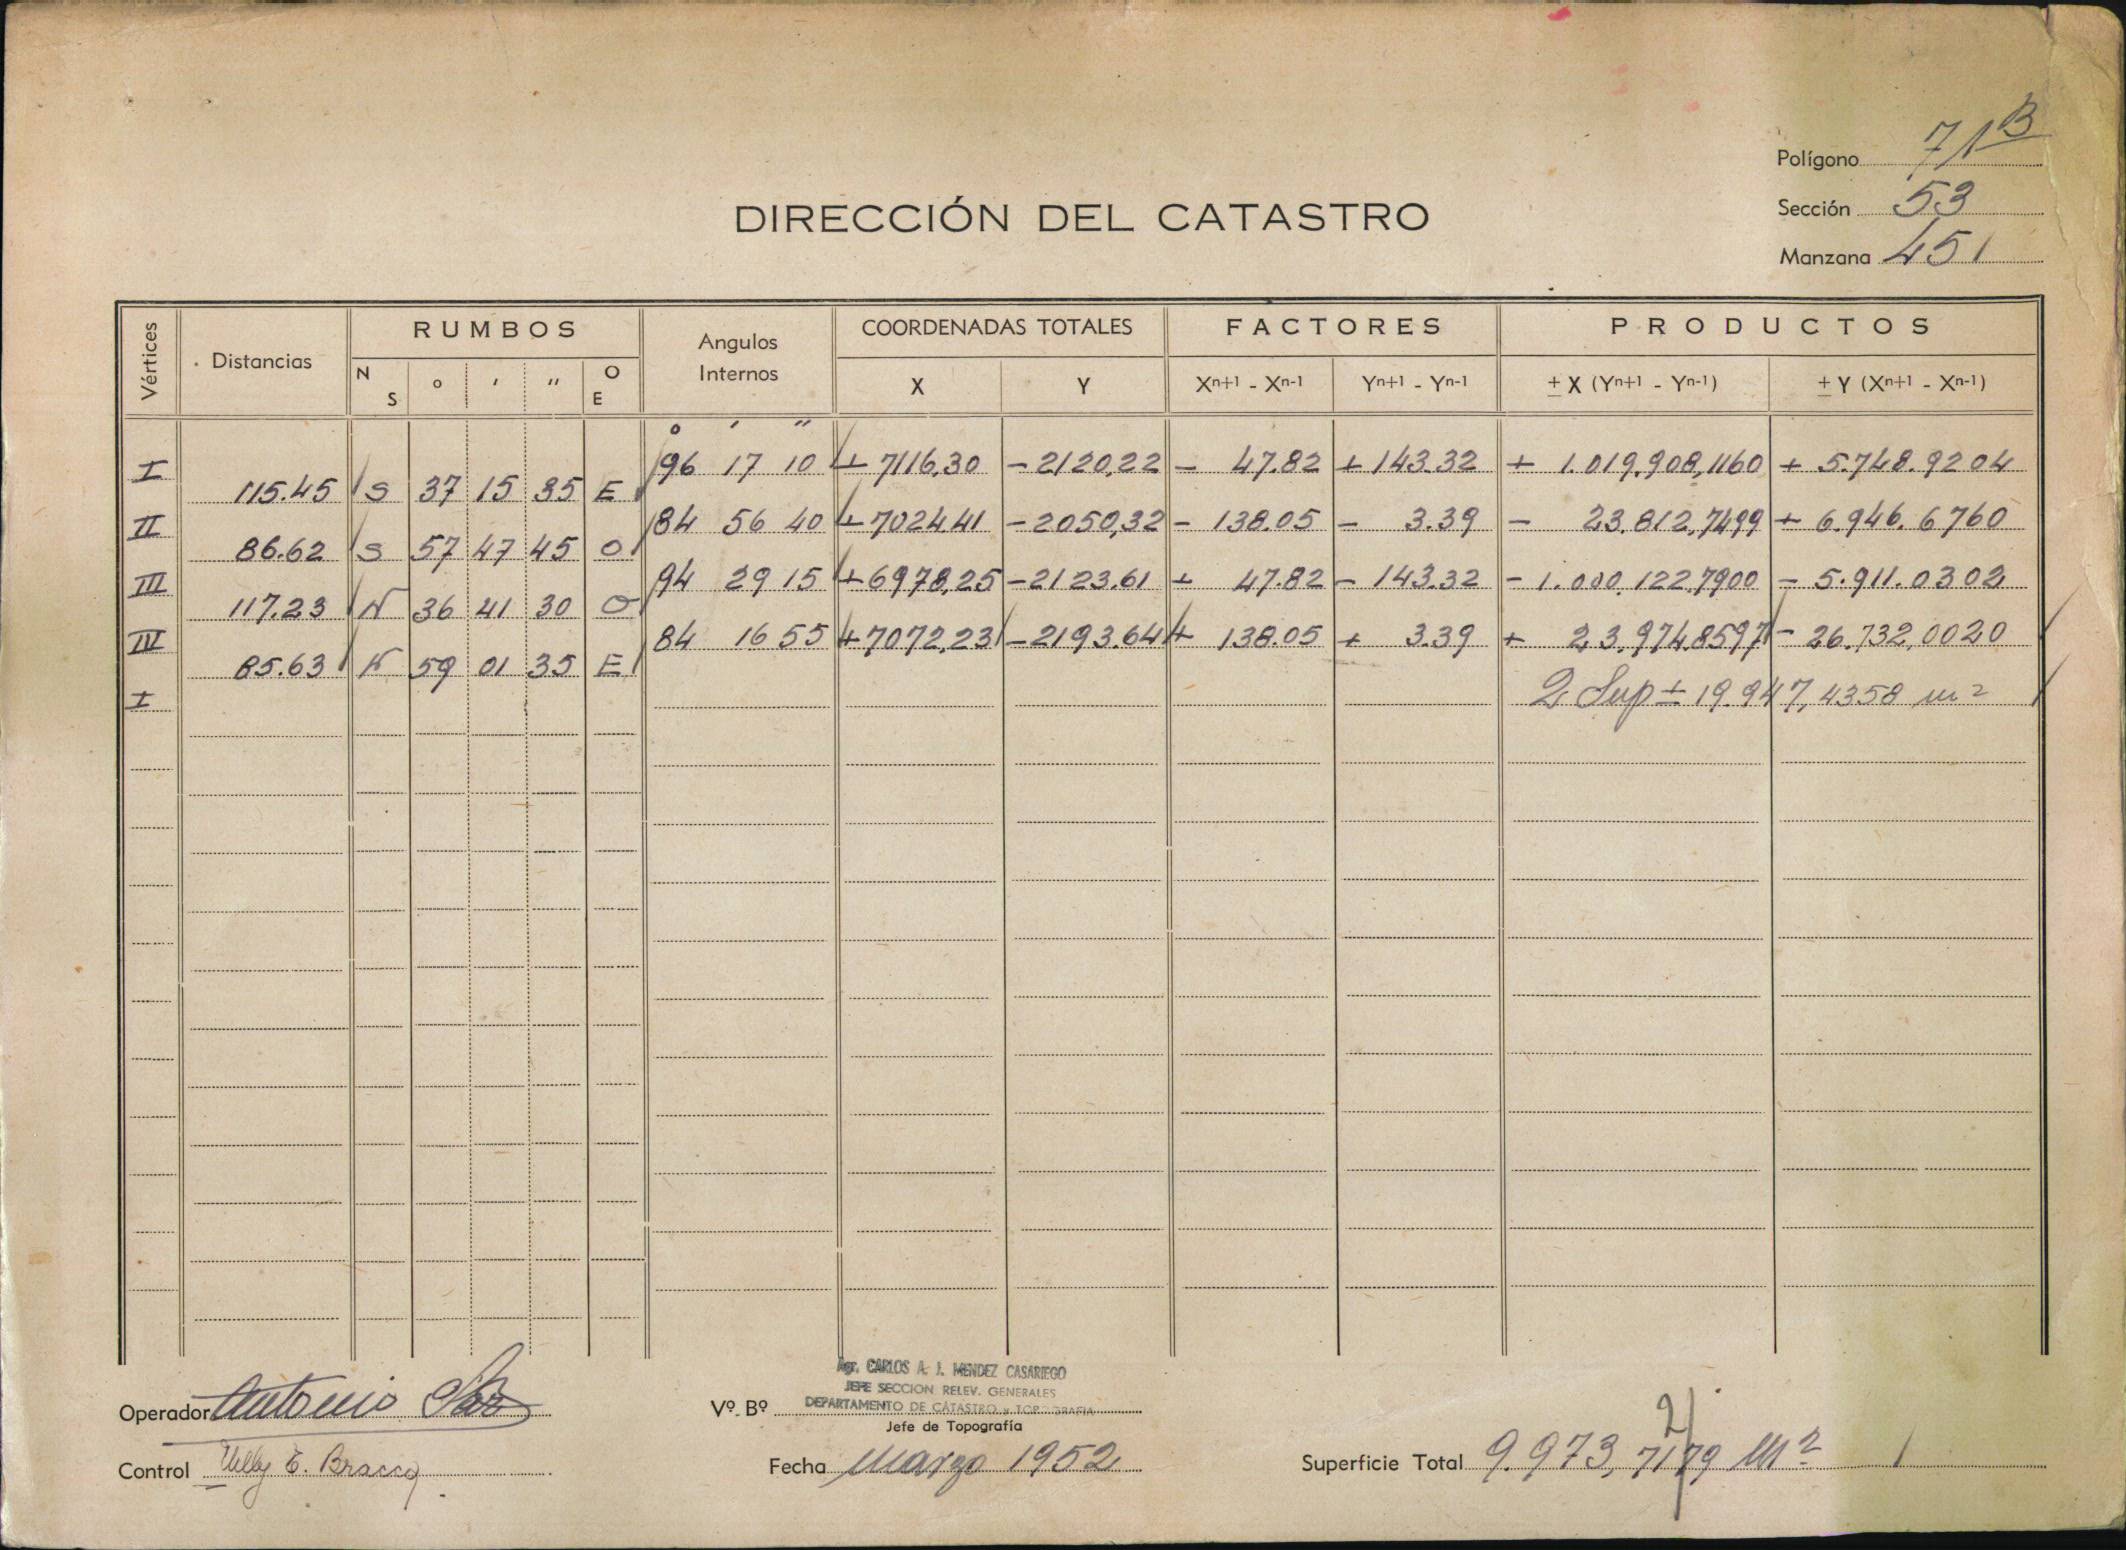 Polígono 71B
Sección 53
Manzana 451
DIRECCIÓN DEL CATASTRO
Vértices Distancias RUMBOS Angulos Internos COORDENADAS TOTALES FACTORES PRODUCTOS
N S ° ' " O E X Y Xn+1 - Xn-1 Yn+1 - Yn-1 ± X (Yn+1 - Yn-1) ± Y (Xn+1 - Xn-1)
° ' "
I 96 17 10 + 7116,30 - 2120,22 - 47.82 + 143.32 + 1.019.908,1160 + 5.748.9204
115.45 S 37 15 35 E
II 84 56 40 + 7024.41 - 2050,32 - 138.05 - 3.39 - 23.812,7499 + 6.946.6760
86.62 S 57 47 45 O
III 94 29 15 + 6978,25 - 2123.61 + 47.82 - 143.32 - 1.000.122,7900 - 5.911.0302
117.23 N 36 41 30 O
IV 84 16 55 + 7072,23 - 2193.64 + 138.05 + 3.39 + 23.974.8597 - 26.732,0020
85.63 N 59 01 35 E
I 2 Sup ± 19.947,4358 m2
Agr. CARLOS A. J. MENDEZ CASARIEGO
JEFE SECCION RELEV. GENERALES
DEPARTAMENTO DE CATASTRO y TOPOGRAFIA
Operador Antonio
Vº.Bº
Jefe de Topografía
Control Nelly E. Bracco
Fecha Marzo 1952
Superficie Total 9.973,7179 m2
2